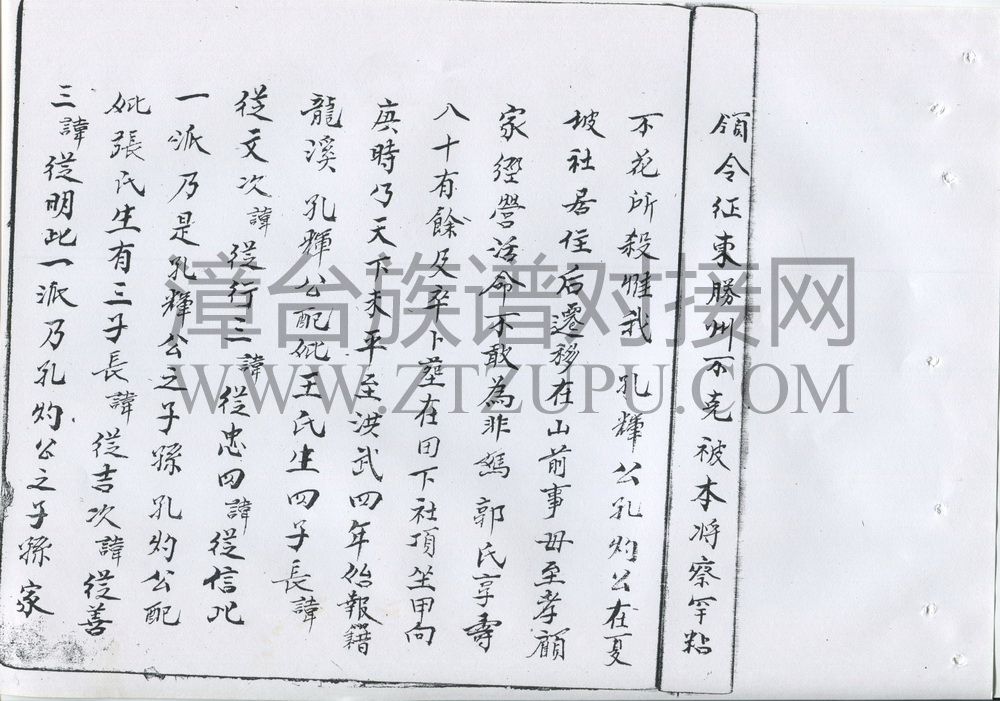 領令征東勝州不克被本将察罕粘
不花所殺惟我孔輝公孔灼公在夏
坡社居住后遷移在山前事母至孝顧
家經營活命不敢為非媽郭氏享壽
八十有餘及卒卜塟在田下社項坐甲向
庚時乃天下未平至洪武四年始報籍
龍溪孔輝公配妣王氏生四子長諱
從文次諱從行三諱從忠四諱從信此
一派乃是孔輝公之子孫孔灼公配
妣張氏生有三子長諱從吉次諱從善
三諱從明此一派乃孔灼公之子孫家
漳台族谱对接网
WWW.ZTZUPU.COM